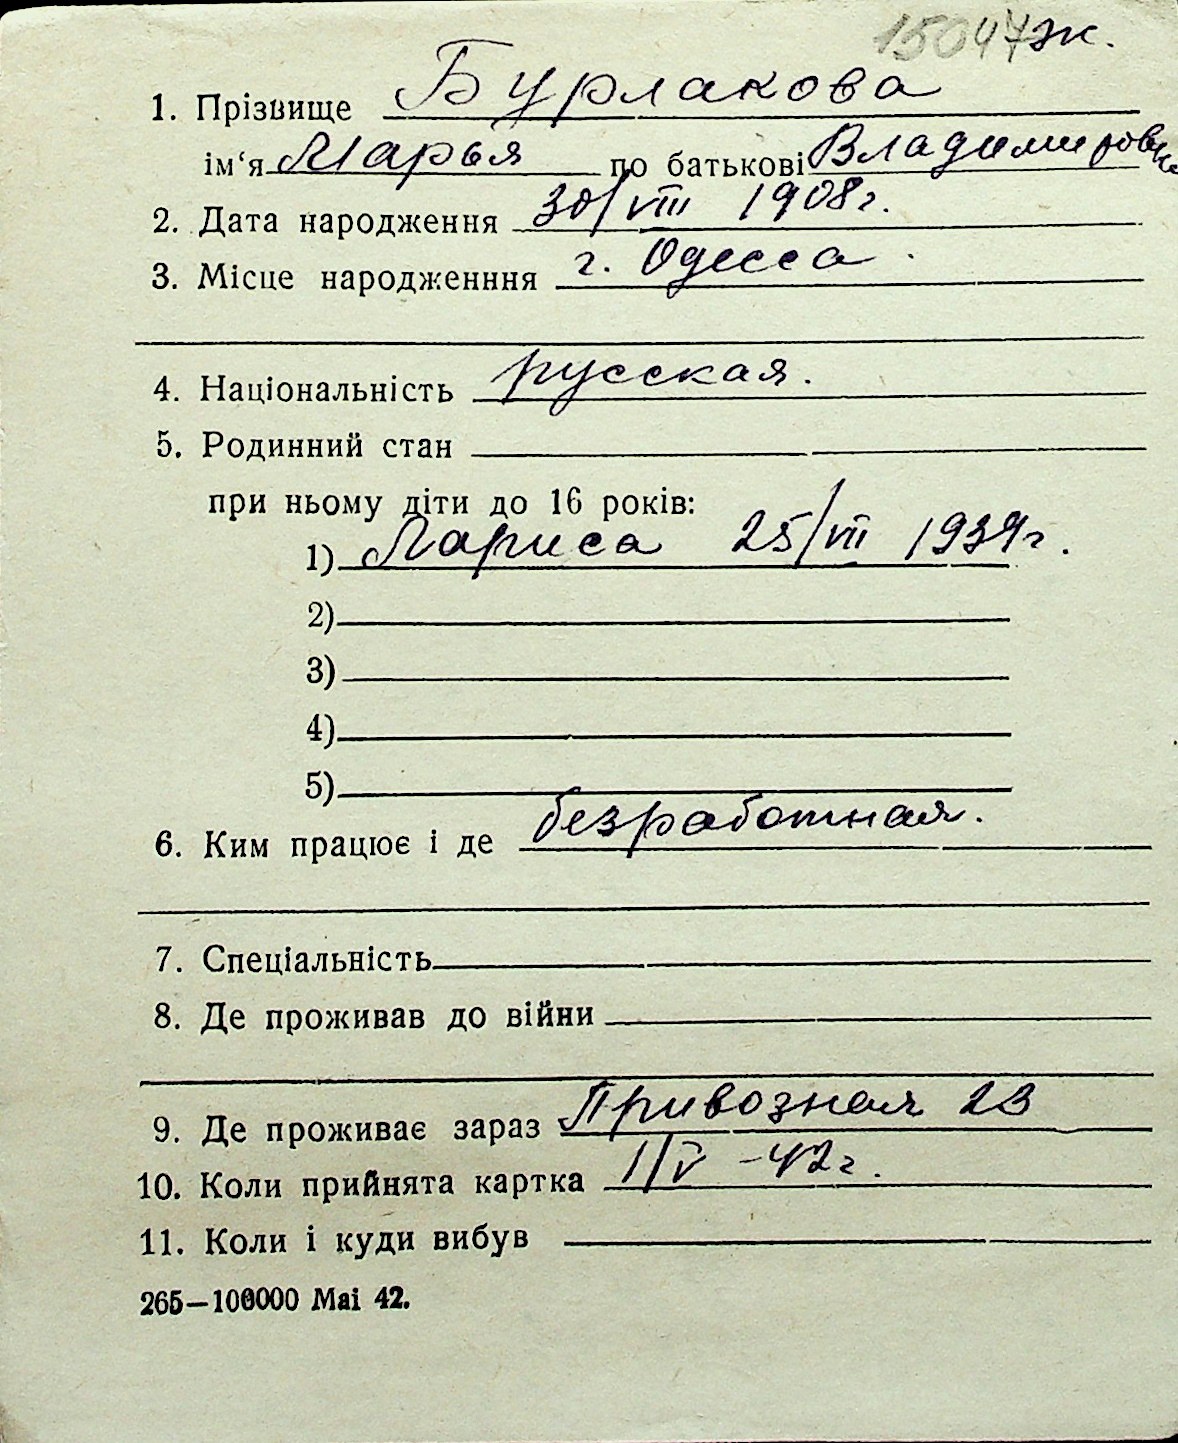 15047 эк.
1. Прізвище Бурлакова
ім‘я Марья по батькові Владимировна
2. Дата народження 30/VIII 1908г.
3. Місце народженння г. Одесса.
4. Національність русская.
5. Родинний стан
при ньому діти до 16 років:
1) Лариса 25/VII 1939г.
2)
3)
4)
5)
6. Ким працює і де безработная.
7. Спеціальність
8. Де проживав до війни
9. Де проживає зараз Привозная 23
10. Коли прийнята картка 1/V -42г.
11. Коли і куди вибув
265—100000 Маі 42.